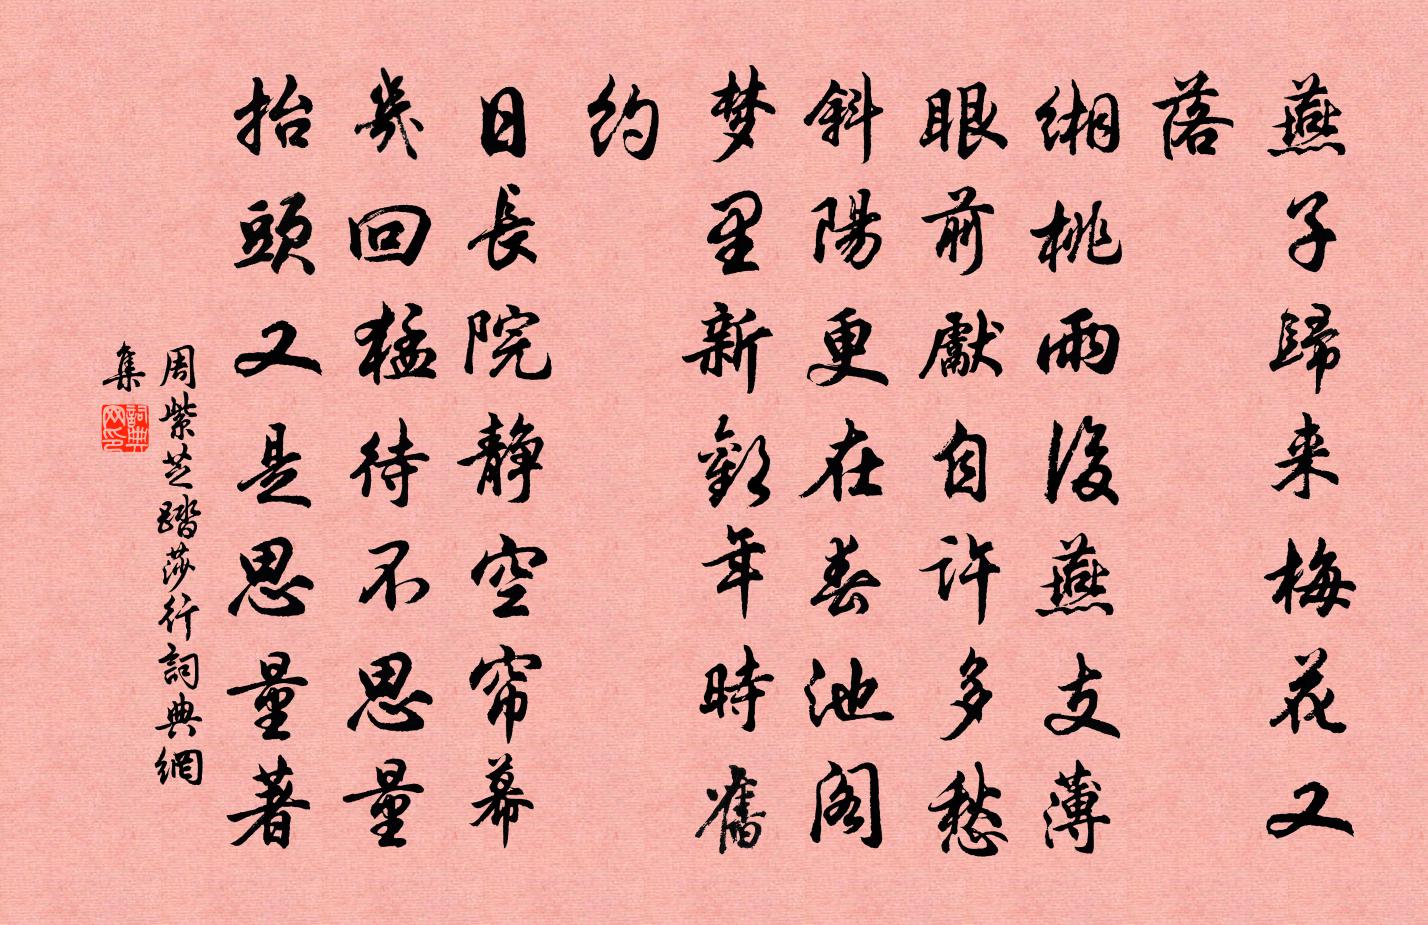 燕子歸来梅花又
落
緗桃雨後燕支薄
眼前獻自許多愁
斜陽更在春池阁
梦里新歡年時舊
约
日長院静空帘幕
幾回猛待不思量
抬頭又是思量著
周紫芝踏莎行詞典網
集
詞典
网印